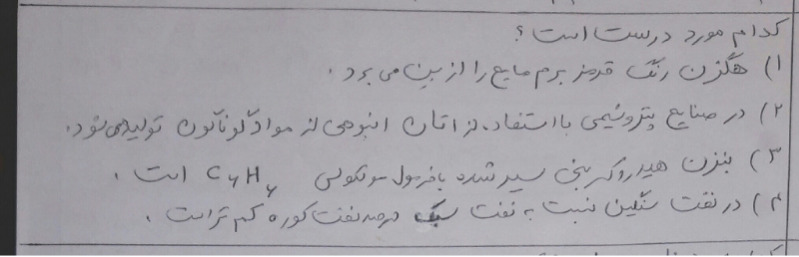 کدام مورد درست است؟
۱) هگزن رنگ قرمز برم مایع را از بین می برد.
۲) در صنایع پتروشیمی با استفاده از اتان انبوهی از مواد گوناگون تولید می شود.
۳) بنزن هیدروکربنی سیر شده با فرمول مولکولی C₆H₆ است.
۴) در نفت سنگین نسبت به نفت سبک درصد نفت کوره کم تر است.